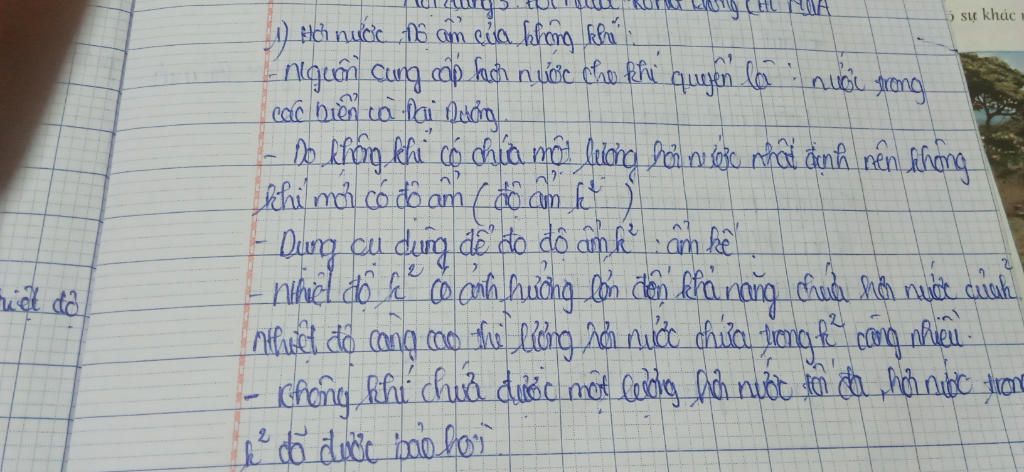 1) Hơi nước, độ ẩm của không khí:
- nguồn cung cấp hơi nước cho khí quyển là : nước trong
các biển và Đại Dương.
- Do không khí có chứa một lượng hơi nước nhất định nên không
khí mới có độ ẩm (độ ẩm k²)
- Dụng cụ dùng để đo độ ẩm k² : ẩm kế.
- nhiệt độ k² có ảnh hưởng lớn đến khả năng chứa hơi nước của k²
nhiệt độ càng cao thì lượng hơi nước chứa trong k² càng nhiều.
- không khí chứa được một lượng hơi nước tối đa, hơi nước trong
k² đó được bão hơi
nhiệt độ
sự khác